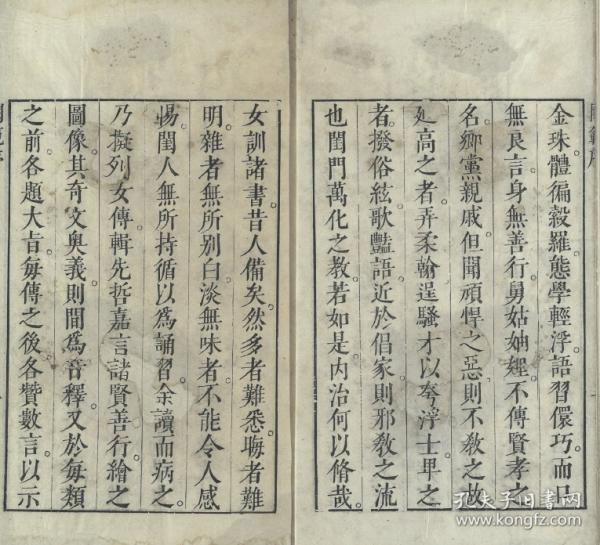 金珠體徧縠羅態學輕浮語習儇巧而口
無良言身無善行舅姑妯娌不傳賢孝之
名鄉黨親戚但聞頑悍之惡則不教之故
乃高之者弄柔翰逞騷才以夸浮士卑之
者撥俗絃歌豔語近於倡家則邪教之流
也閨門萬化之教若如是內治何以脩哉
女訓諸書昔人備矣然多者難悉晦者難
明雜者無所別白淡無味者不能令人感
惕閨人無所持循以爲誦習余讀而病之
乃擬列女傳輯先哲嘉言諸賢善行繪之
圖像其奇文奥義則間爲音釋又於每類
之前各題大旨每傳之後各贊數言以示
孔夫子旧书网
www.kongfz.com